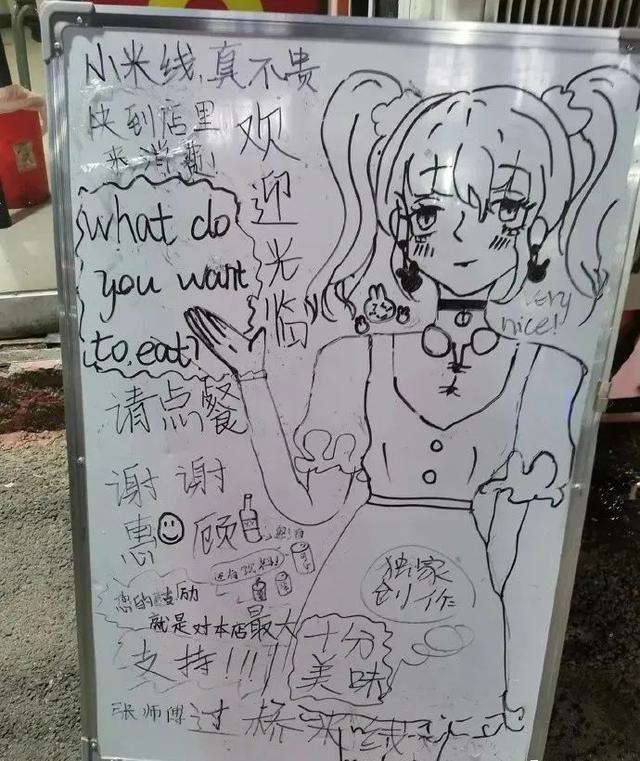 小米线,真不贵
快到店里
来消费!
欢迎光临
what do
you want
to eat?
very
nice!
请点餐
谢谢
惠顾
还有饮料!
独家
创作
您的鼓励
就是对本店最大
支持!!!
十分
美味
张师傅过桥米线